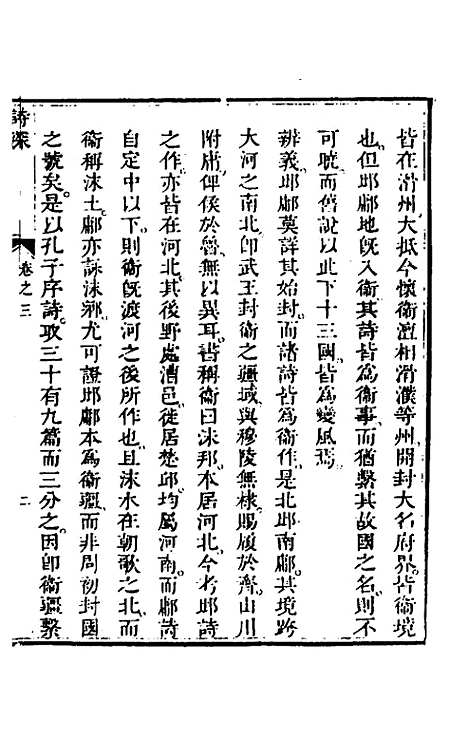 皆在滑州大抵今懷衞澶相滑濮等州開封大名府界皆衞境
也但邶鄘地旣入衞其詩皆爲衞事而猶繫其故國之名則不
可曉而舊說以此下十三國皆爲變風焉
辨義邶鄘莫詳其始封而諸詩皆爲衞作是北邶南鄘其境跨
大河之南北卽武王封衞之疆域與穆陵無棣賜履於齊山川
附庸俾侯於魯無以異耳書稱衞曰沬邦本居河北今考邶詩
之作亦皆在河北其後野處漕邑徙居楚邱均屬河南而鄘詩
自定中以下則衞旣渡河之後所作也且沬水在朝歌之北而
衞稱沬土鄘亦詠沬鄉尤可證邶鄘本爲衞疆而非周初封國
之號矣是以孔子序詩取三十有九篇而三分之因卽衞疆繫
詩深
卷之三
二